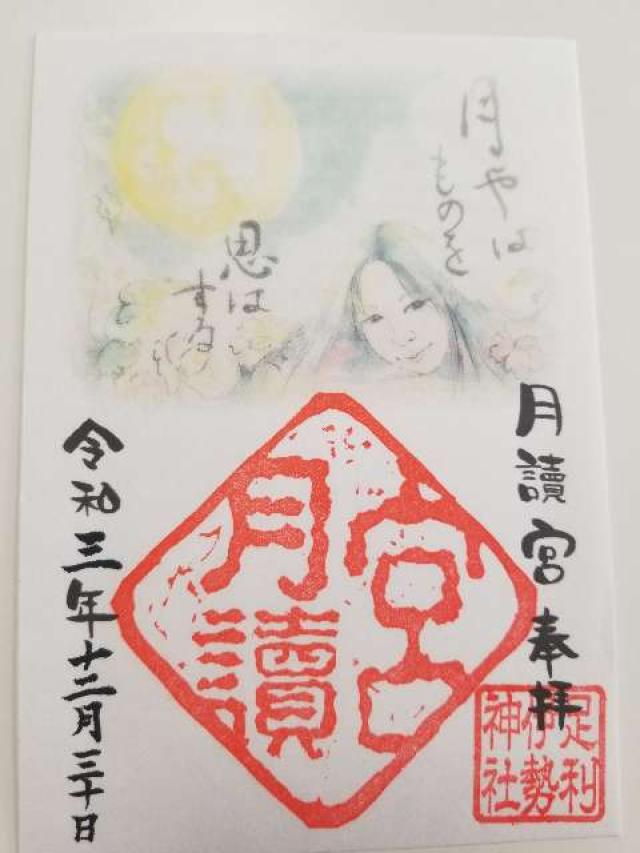 月やは
ものを
思は
する
月讀宮奉拝
足利
伊勢
神社
月讀
宮
令和三年十二月三十日